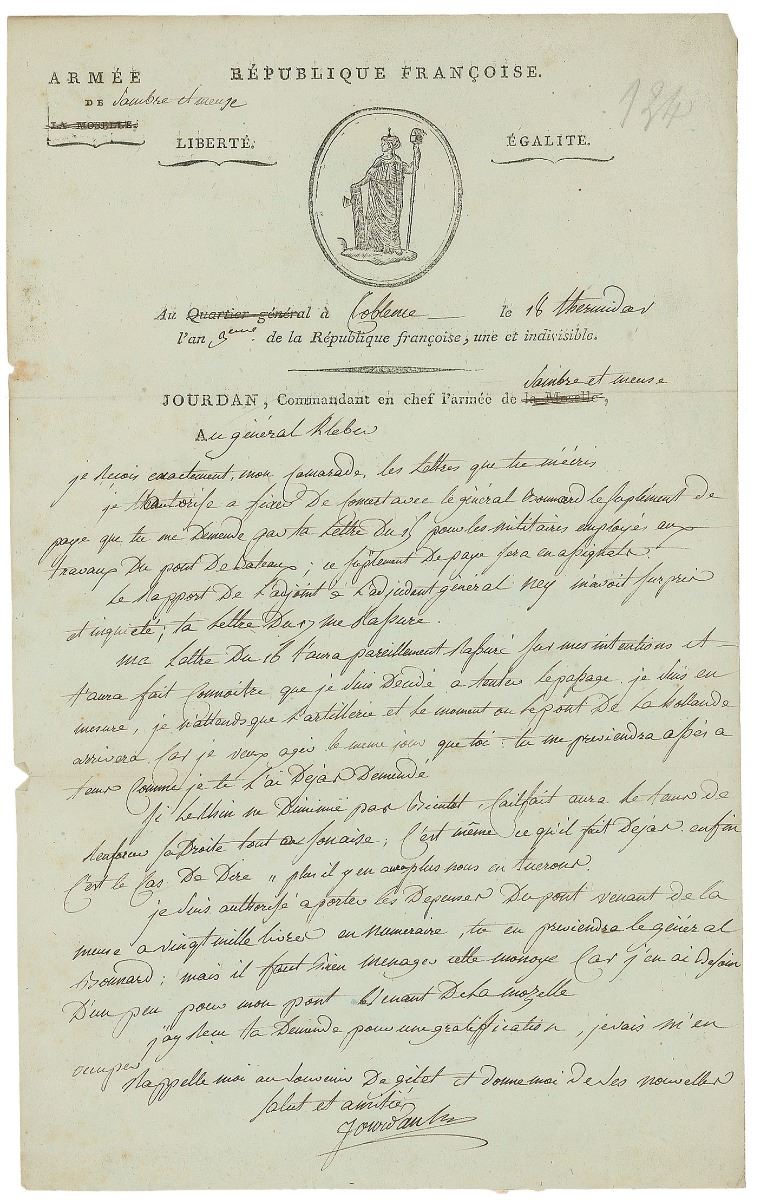 ARMÉE
DE Sambre et meuse
LA MOSELLE.
RÉPUBLIQUE FRANÇOISE.
124
LIBERTÉ.
ÉGALITÉ.
Au Quartier-général à Coblence le 18 thermidor
l'an 3eme de la République françoise, une et indivisible.
Sambre et meuse
JOURDAN, Commandant en chef l'armée de la Moselle,
Au général Kleber
je recois exactement, mon Camarade, les Lettres que tu m'écris
je t'authorise a fixer De Concert avec le général Bonnard le suplement de
paye que tu me Demande par ta Lettre Du 15 pour les militaires employes aux
travaux Du pont De bateaux; ce suplement De paye sera en assignats.
Le Rapport De L'adjoint à L'adjudent général Ney m'avoit surpris
et inquieté; ta Lettre Du 17 me Rassure.
ma Lettre Du 16 t'aura pareillement Rassuré sur mes intentions et
t'aura fait Connoitre que je suis Decidé a tenter le passage. je suis en
mesure, je n'attends que L'artillerie et le moment ou le pont De La hollande
arrivera. Car je veux agir le meme jour que toi. tu me previendra assés a
tems Comme je te L'ai Dejas Demandé
Si Le Rhin ne Diminue pas bientot, Clairfait aura le tems de
Renforcer sa Droite tout a son aise; C'est même ce qu'il fait Dejas. enfin
C'est le Cas De Dire " plus il y en aura plus nous en tuerons.
je suis authorisé a porter les Depenses Du pont venant de la
meuse a vingt mille livres en numeraire, tu en previendra le général
Bonnard; mais il faut bien menager cette monoye Car j'en ai besoin
D'un peu pour mon pont venant De La mozelle
j'ay Recu ta Demande pour une gratification, je vais m'en
occuper
Rappelle moi au souvenir De gilet et donne moi de ses nouvelles
salut et amitié
Jourdan